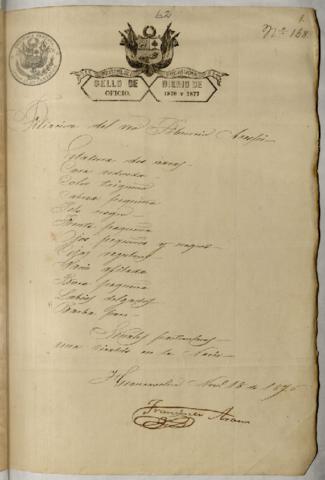 62
1.
Nº 168
SELLO DE OFICIO.
BIENIO DE 1876 Y 1877
Filiación del reo
Estatura dos varas
Cara redonda
Color trigueño
Cabeza pequeña
Pelo negro
Frente pequeña
Ojos pequeños y negros
Cejas regulares
Nariz afilada
Boca pequeña
Labios delgados
Barba
Señales particulares
una cicatriz en la Nariz
18 de 187
Francisco Arana